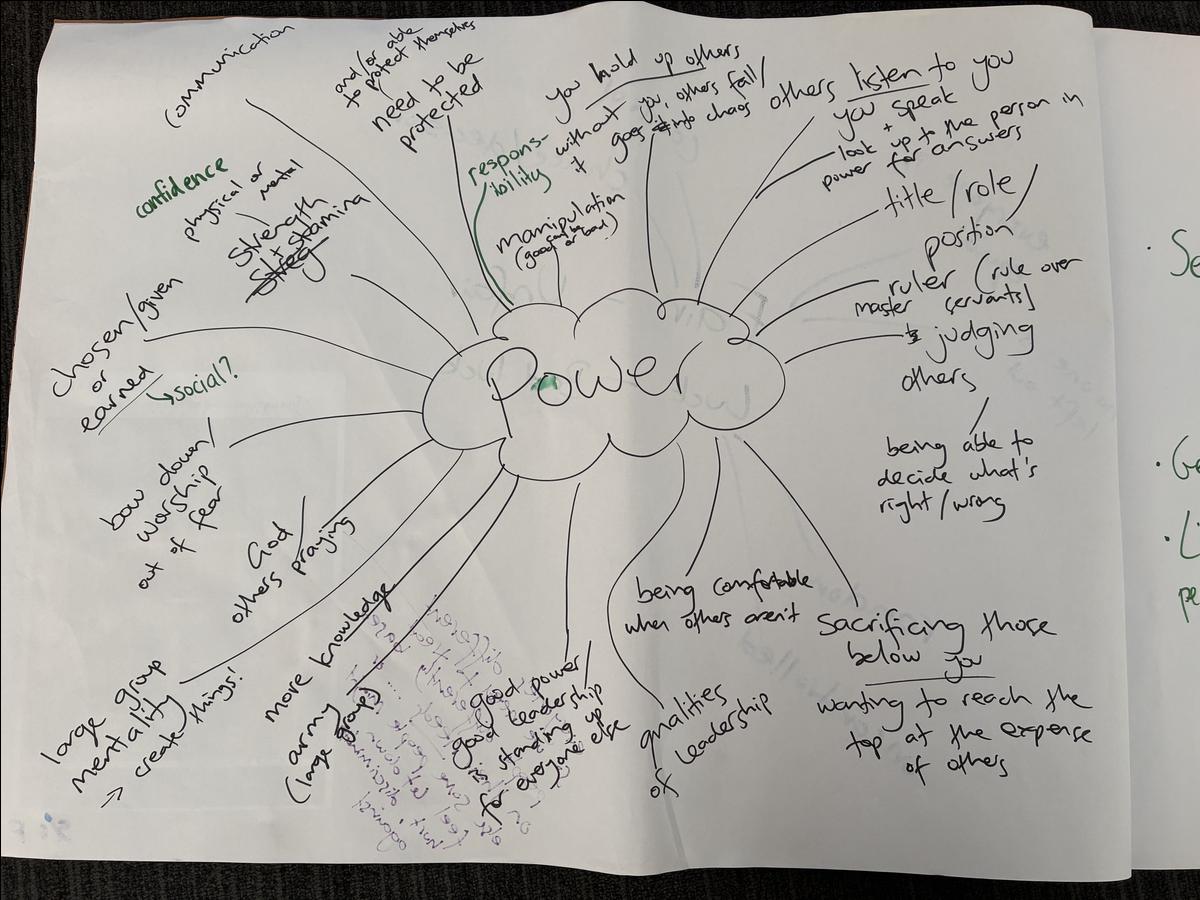 Power
communication
and/or able
to protect themselves
need to be
protected
respons-
ibility
you hold up others
without you, others fall/
+ goes into chaos
manipulation
(good or bad)
others listen to you
+
you speak
look up to the person in
power for answers
title/role/
position
ruler (rule over
master servants)
judging
others
being able to
decide what's
right/wrong
sacrificing those
below you
wanting to reach the
top at the expense
of others
being comfortable
when others aren't
qualities
of leadership
good power/
good leadership
standing up
for everyone else
army
(large groups)
more knowledge
large group
mentality
→ create things!
God/
others praying
bow down/
worship
out of fear
chosen/given
or
earned
↳ social?
confidence
physical or
mental
strength
+ stamina
Se
Ge
L
pe